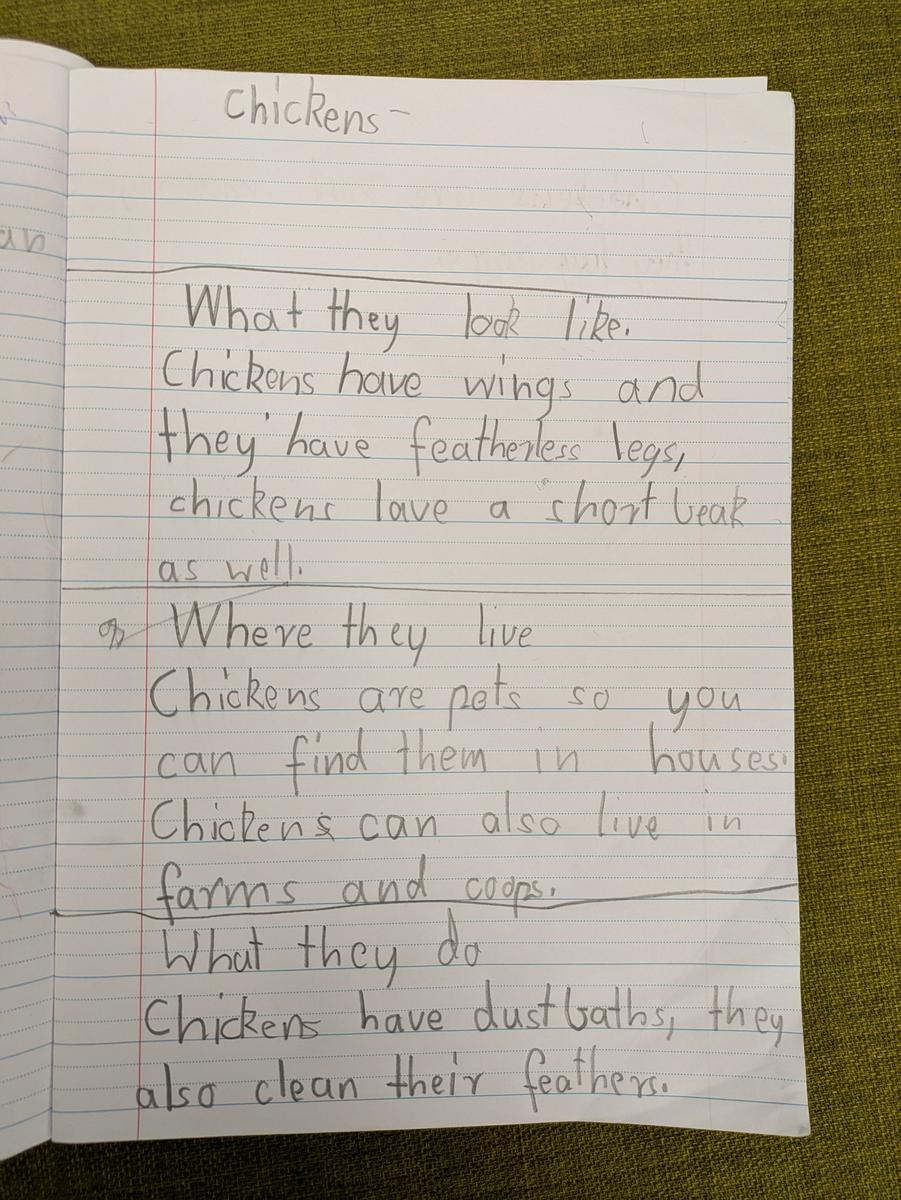 an
Chickens -
What they look like.
Chickens have wings and
they have featherless legs,
chickens lave a short beak
as well.
Where they live
Chickens are pets so you
can find them in houses.
Chickens can also live in
farms and coops.
What they do
Chickens have dustbaths, they
also clean their feathers.